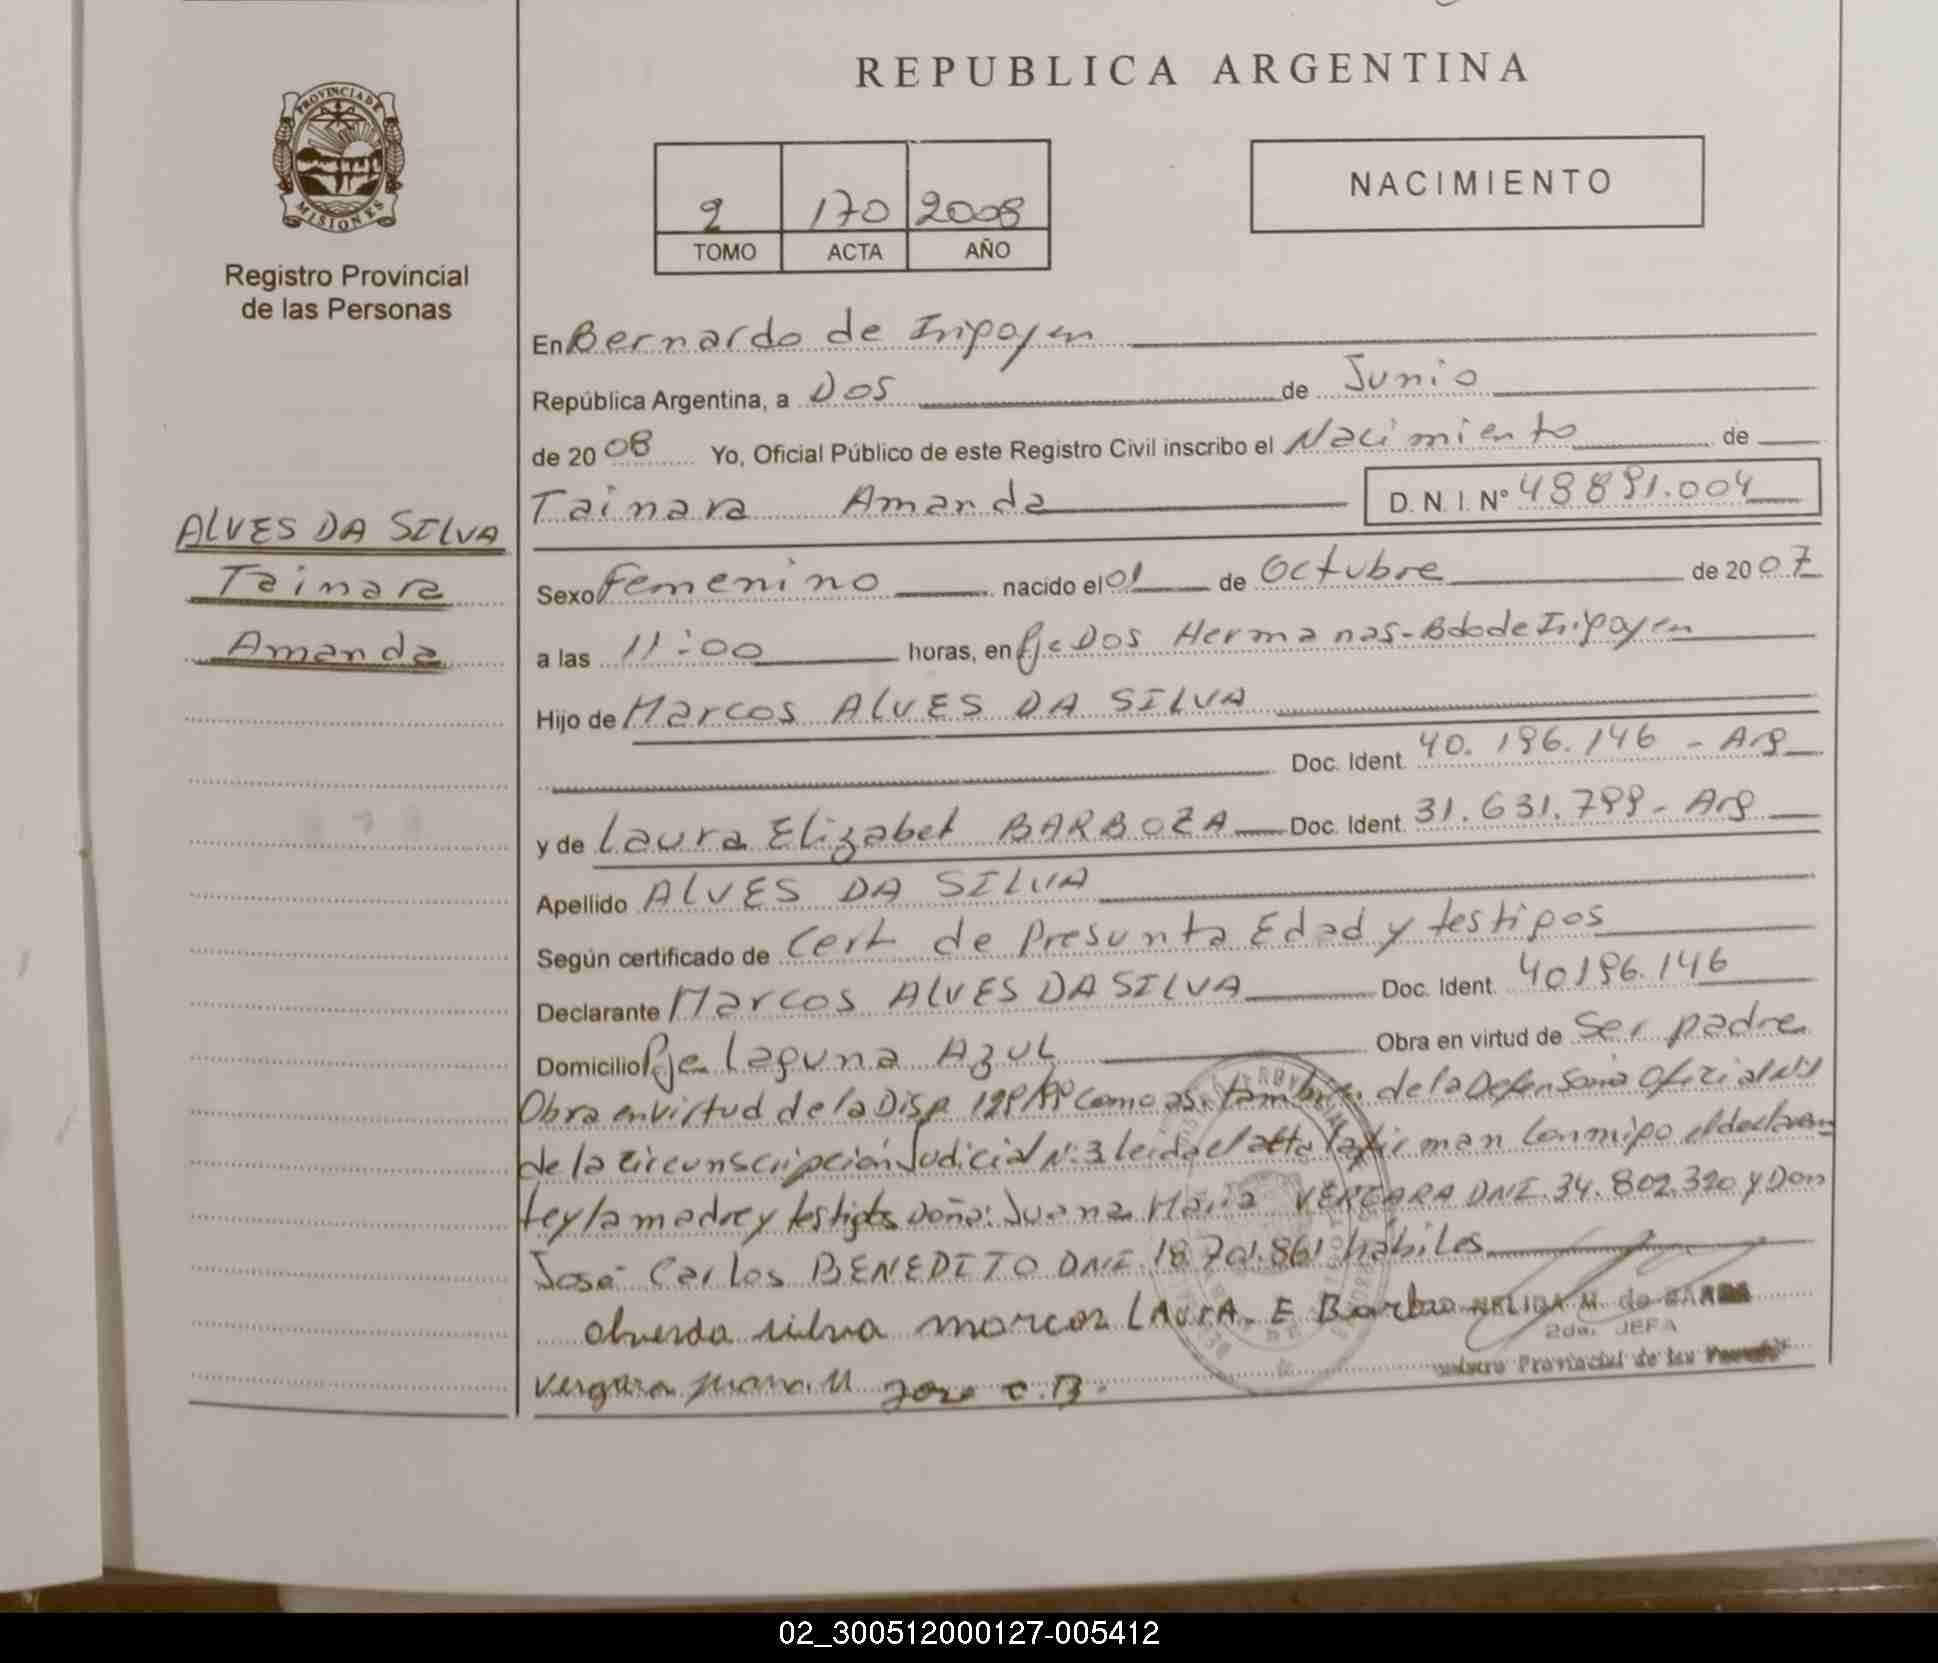 REPUBLICA ARGENTINA
PROVINCIA DE
MISIONES
Registro Provincial
de las Personas
2 170 2008
TOMO ACTA AÑO
NACIMIENTO
En Bernardo de Irigoyen
República Argentina, a Dos de Junio
de 2008 Yo, Oficial Público de este Registro Civil inscribo el Nacimiento de
Tainara Amanda D. N. I. Nº 48891.004
ALVES DA SILVA
Tainara
Amanda
Sexo Femenino nacido el 01 de Octubre de 2007
a las 11:00 horas, en Pje Dos Hermanas-Bdo de Irigoyen
Hijo de Marcos ALVES DA SILVA
Doc. Ident. 40.196.146 - Arg
y de Laura Elizabet BARBOZA Doc. Ident. 31.631.799 - Arg
Apellido ALVES DA SILVA
Según certificado de Cert de Presunta Edad y testigos
Declarante Marcos ALVES DA SILVA Doc. Ident. 40196.146
Domicilio Pje Laguna Azul Obra en virtud de Ser padre
Obra en virtud de la Disp. como asi tambien de la Defensoria Oficial Nº1
de la circunscripción Judicial Nº3 leida el acta la firman conmigo el declaran
te y la madre y testigos Doña: Juana Maria VERGARA DNI. 34.802.320 y Don
José Carlos BENEDITO DNI. 18.701.861 habiles
silva marcos LAURA. E NELIDA M. de
2da. JEFA
Provincial de las
Vergara Juana M Jose C.B.
02_300512000127-005412